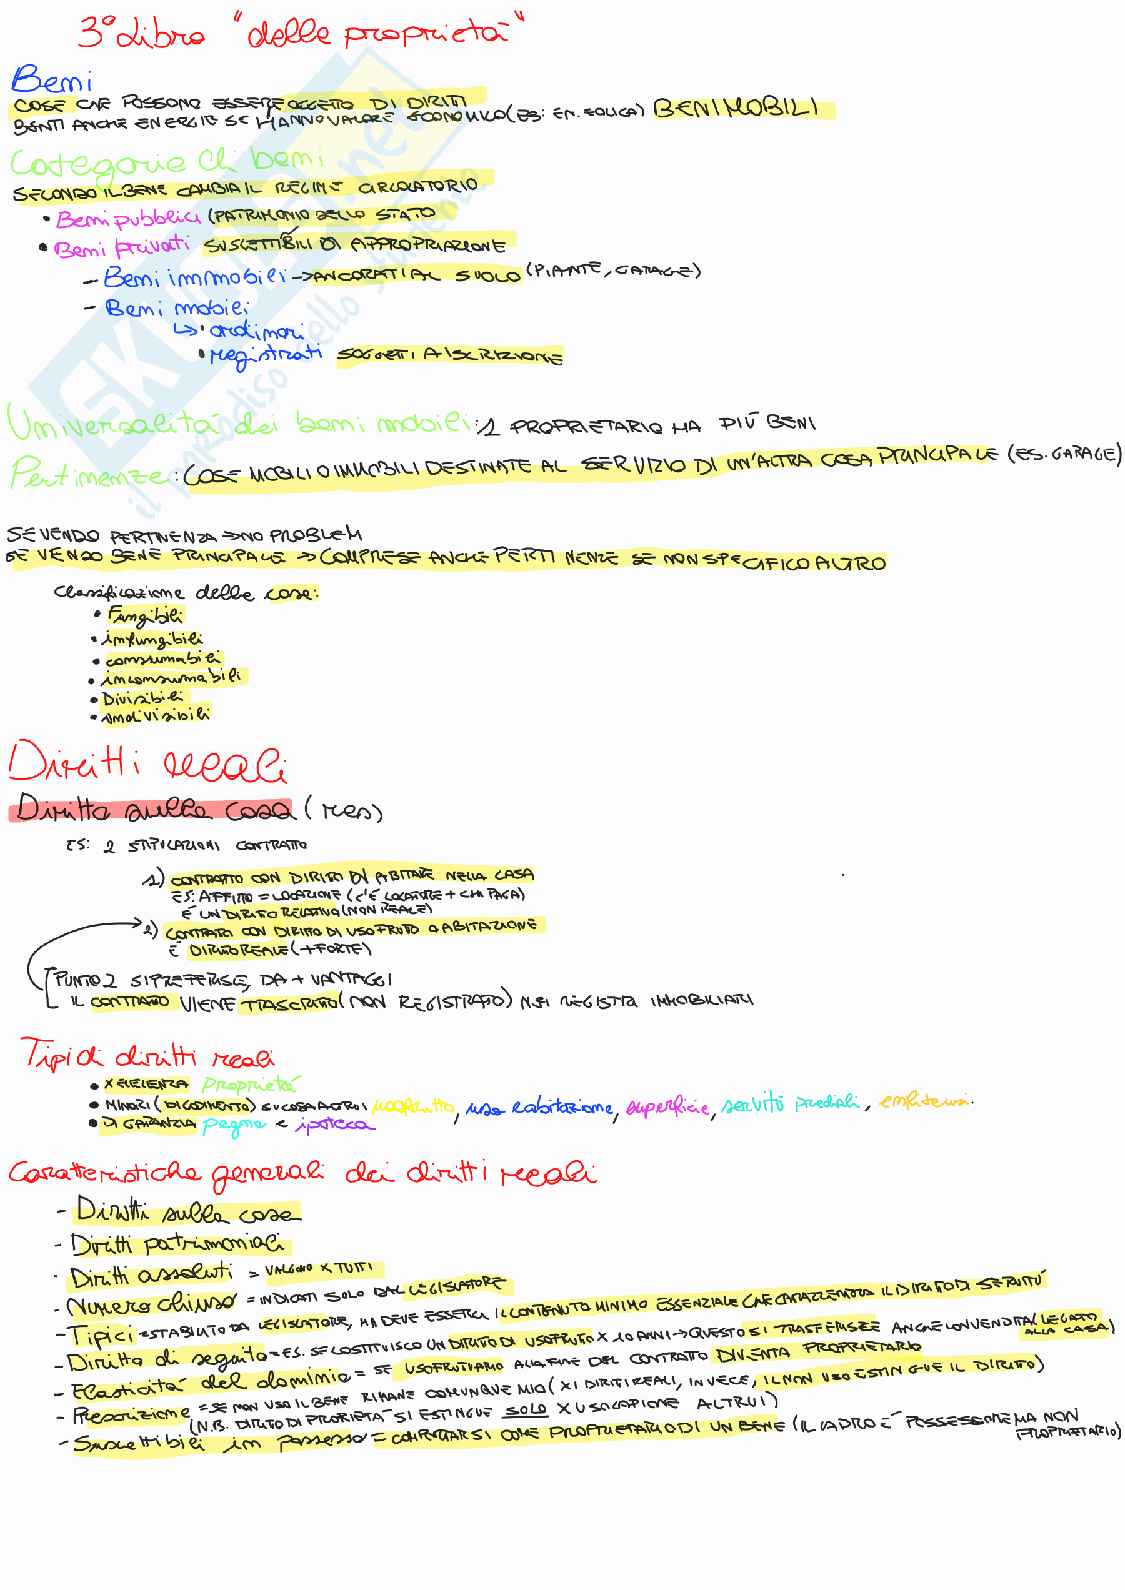 3° Libro "delle proprietà"
Beni
COSE CHE POSSONO ESSERE OGGETTO DI DIRITTI
BENTI ANCHE ENERGIE SE HANNO VALORE ECONOMICO (ES: EN. EOLICA) BENI MOBILI
Categorie di beni
SECONDO IL BENE CAMBIA IL REGIME CIRCOLATORIO
• Beni pubblici (PATRIMONIO DELLO STATO
• Beni privati SUSCETTIBILI DI APPROPRIAZIONE
– Beni immobili → ANCORATI AL SUOLO (PIANTE, GARAGE)
– Beni mobili
↳ • ordinari
• registrati SOGGETTI A ISCRIZIONE
Universalità dei beni mobili: 1 PROPRIETARIO HA PIÙ BENI
Pertinenze: COSE MOBILI O IMMOBILI DESTINATE AL SERVIZIO DI UN'ALTRA COSA PRINCIPALE (ES. GARAGE)
SE VENDO PERTINENZA → NO PROBLEM
SE VENDO BENE PRINCIPALE → COMPRESE ANCHE PERTINENZE SE NON SPECIFICO ALTRO
Classificazione delle cose:
• Fungibili
• infungibili
• consumabili
• inconsumabili
• Divisibili
• indivisibili
Diritti reali
Diritto sulle cosa (res)
ES: 2 STIPULAZIONI CONTRATTO
1) CONTRATTO CON DIRITTO DI ABITARE NELLA CASA
ES: AFFITTO = LOCAZIONE (C'È LOCATORE + CHI PAGA)
È UN DIRITTO RELATIVO (NON REALE)
2) CONTRATTO CON DIRITTO DI USOFRUTTO O ABITAZIONE
È DIRITTO REALE (+ FORTE)
PUNTO 2 SI PREFERISCE, DA + VANTAGGI
IL CONTRATTO VIENE TRASCRITTO (NON REGISTRATO) NEI REGISTRI IMMOBILIARI
Tipi di diritti reali
• X ECCELLENZA Proprietà
• MINORI (DI GODIMENTO) SU COSA ALTRUI usofrutto, uso e abitazione, superficie, servitù prediali, enfiteusi.
• DI GARANZIA pegno e ipoteca
Caratteristiche generali dei diritti reali
– Diritti sulle cose
– Diritti patrimoniali
– Diritti assoluti = VALGONO X TUTTI
– Numero chiuso = INDICATI SOLO DAL LEGISLATORE
– Tipici = STABILITO DA LEGISLATORE, MA DEVE ESSERCI IL CONTENUTO MINIMO ESSENZIALE CHE CARATTERIZZA IL DIRITTO DI SERVITÙ
– Diritto di seguito = ES. SE COSTITUISCO UN DIRITTO DI USOFRUTTO X 20 ANNI → QUESTO SI TRASFERISCE ANCHE CON VENDITA (LEGATO ALLA CASA)
– Elasticità del dominio = SE USOFRUTTUAMO ALLA FINE DEL CONTRATTO DIVENTA PROPRIETARIO
– Prescrizione = SE NON USO IL BENE RIMANE COMUNQUE MIO (X I DIRITTI REALI, INVECE, IL NON USO ESTINGUE IL DIRITTO)
(N.B. DIRITTO DI PROPRIETÀ SI ESTINGUE SOLO X USUCAPIONE ALTRUI)
– Suscettibili im possesso = COMPORTARSI COME PROPRIETARIO DI UN BENE (IL LADRO È POSSESSORE MA NON PROPRIETARIO)
SKUOLA.net
il paradiso dello studente